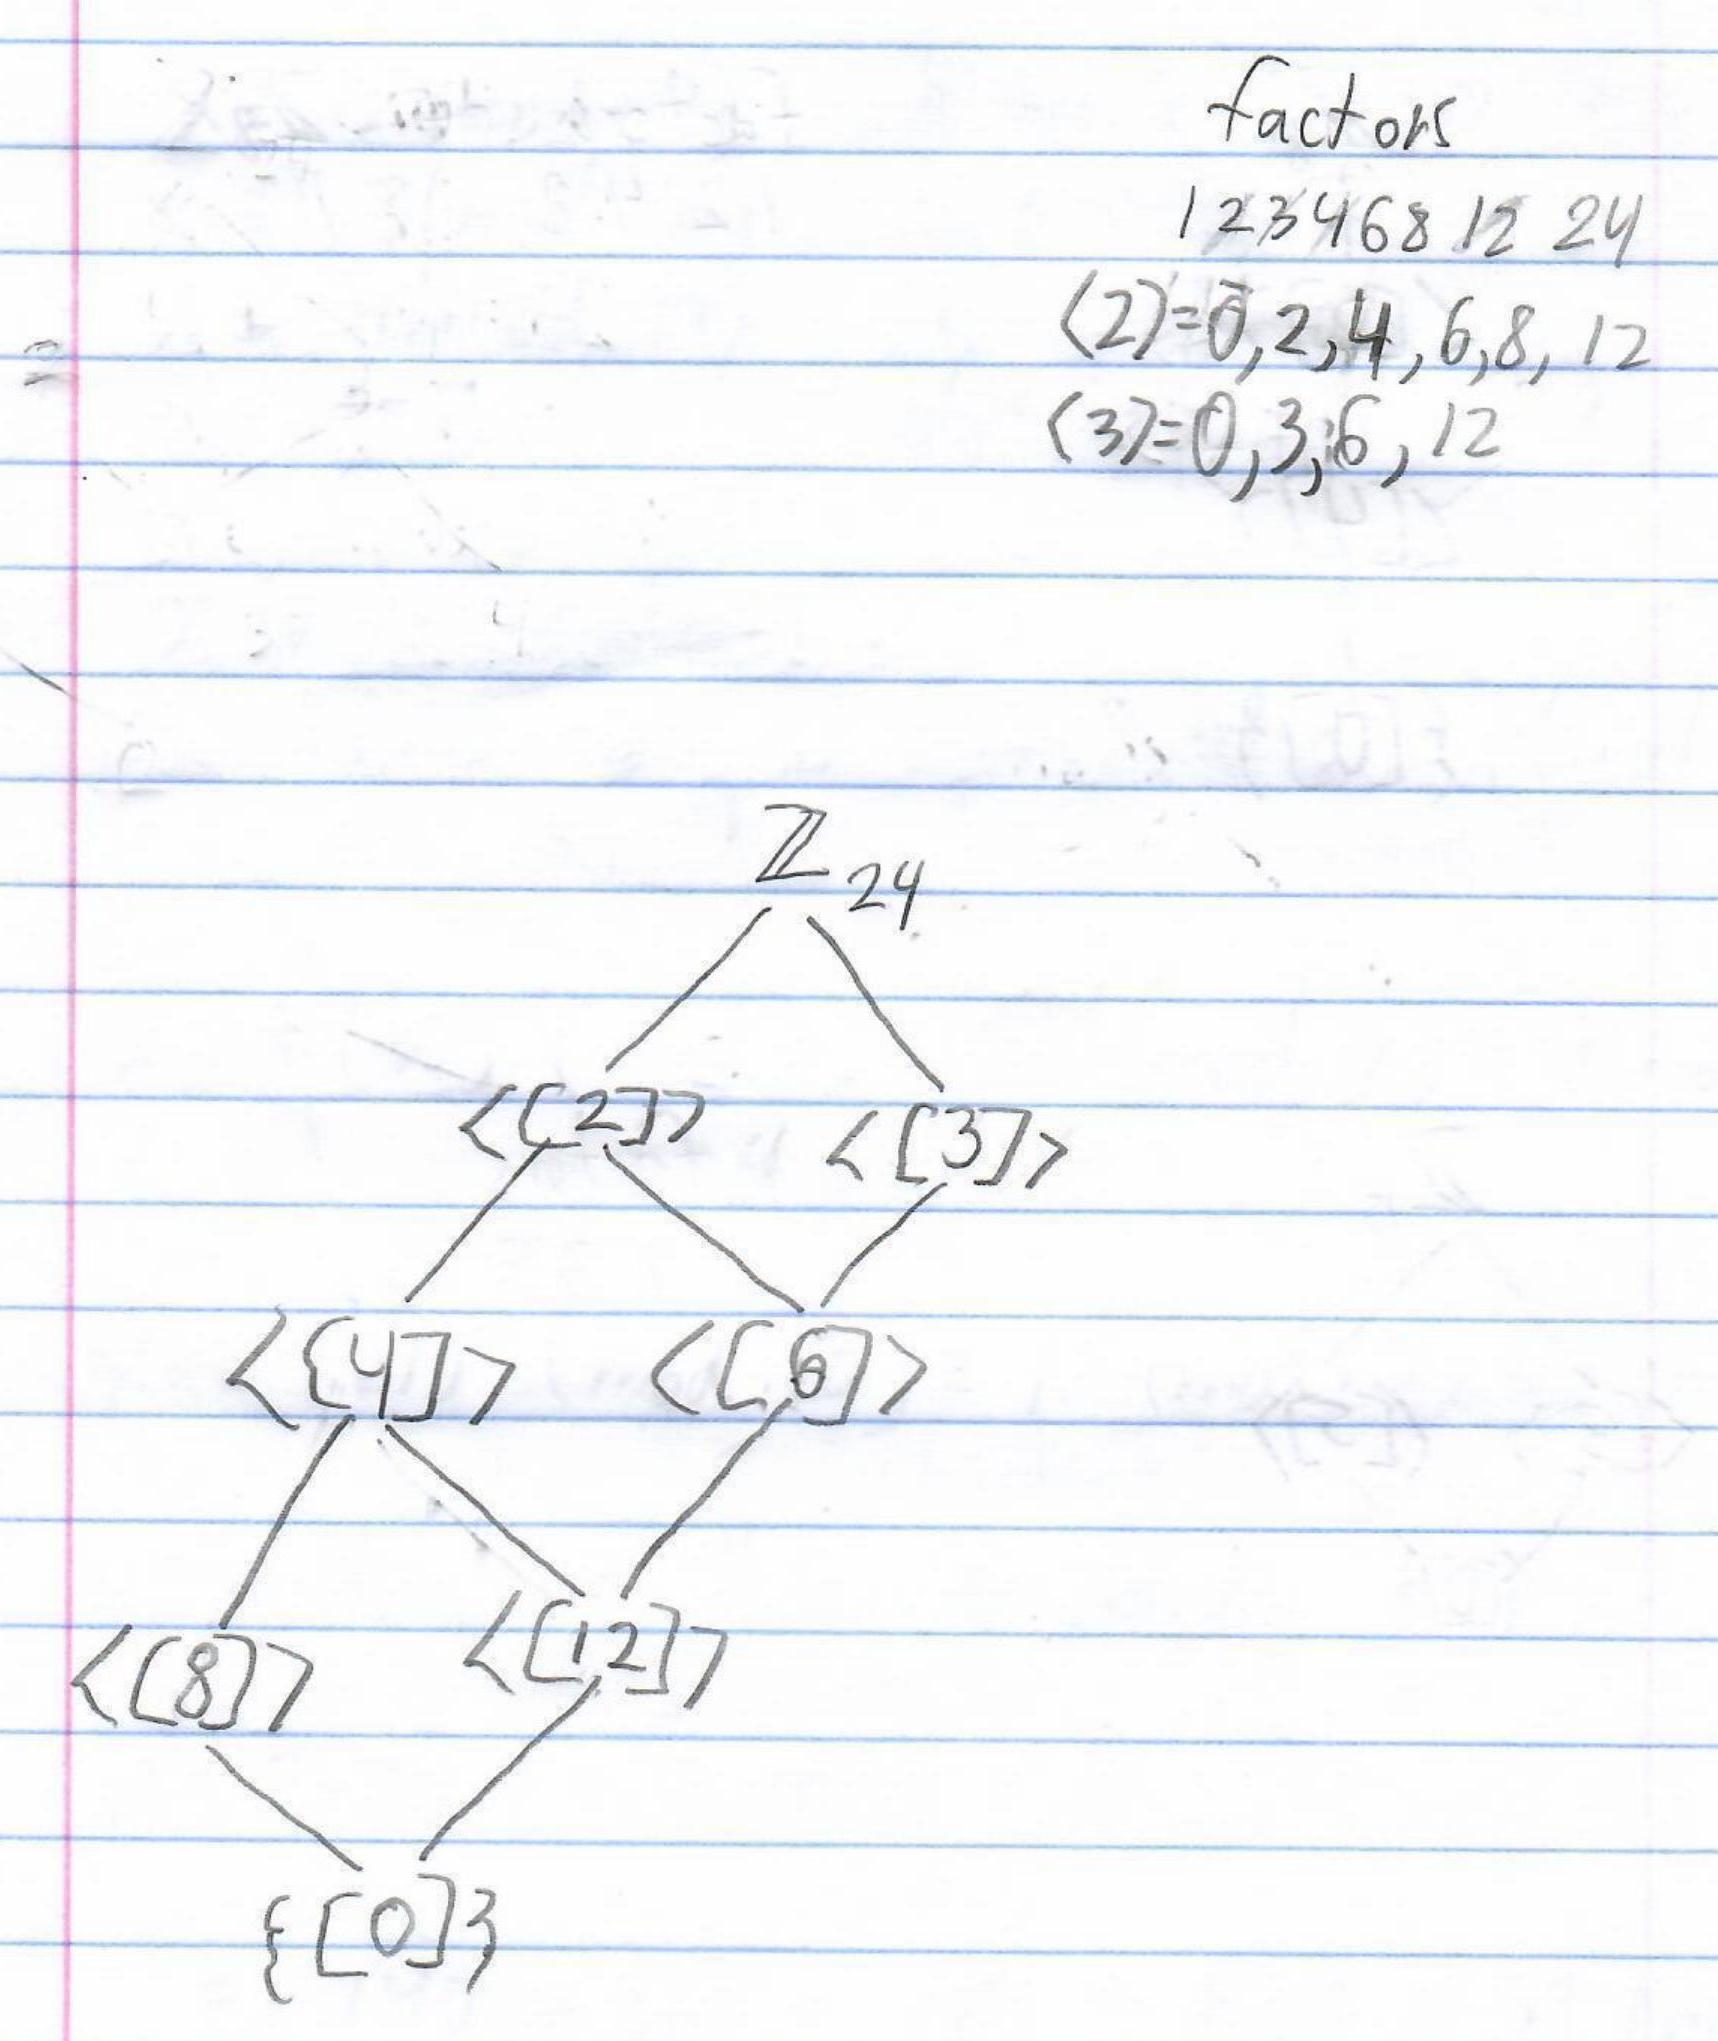 factors
1 2 3 4 6 8 12 24
⟨2⟩=0,2,4,6,8,12
⟨3⟩=0,3,6,12
ℤ24
<[2]> <[3]>
<[4]> <[6]>
<[8]> <[12]>
{[0]}